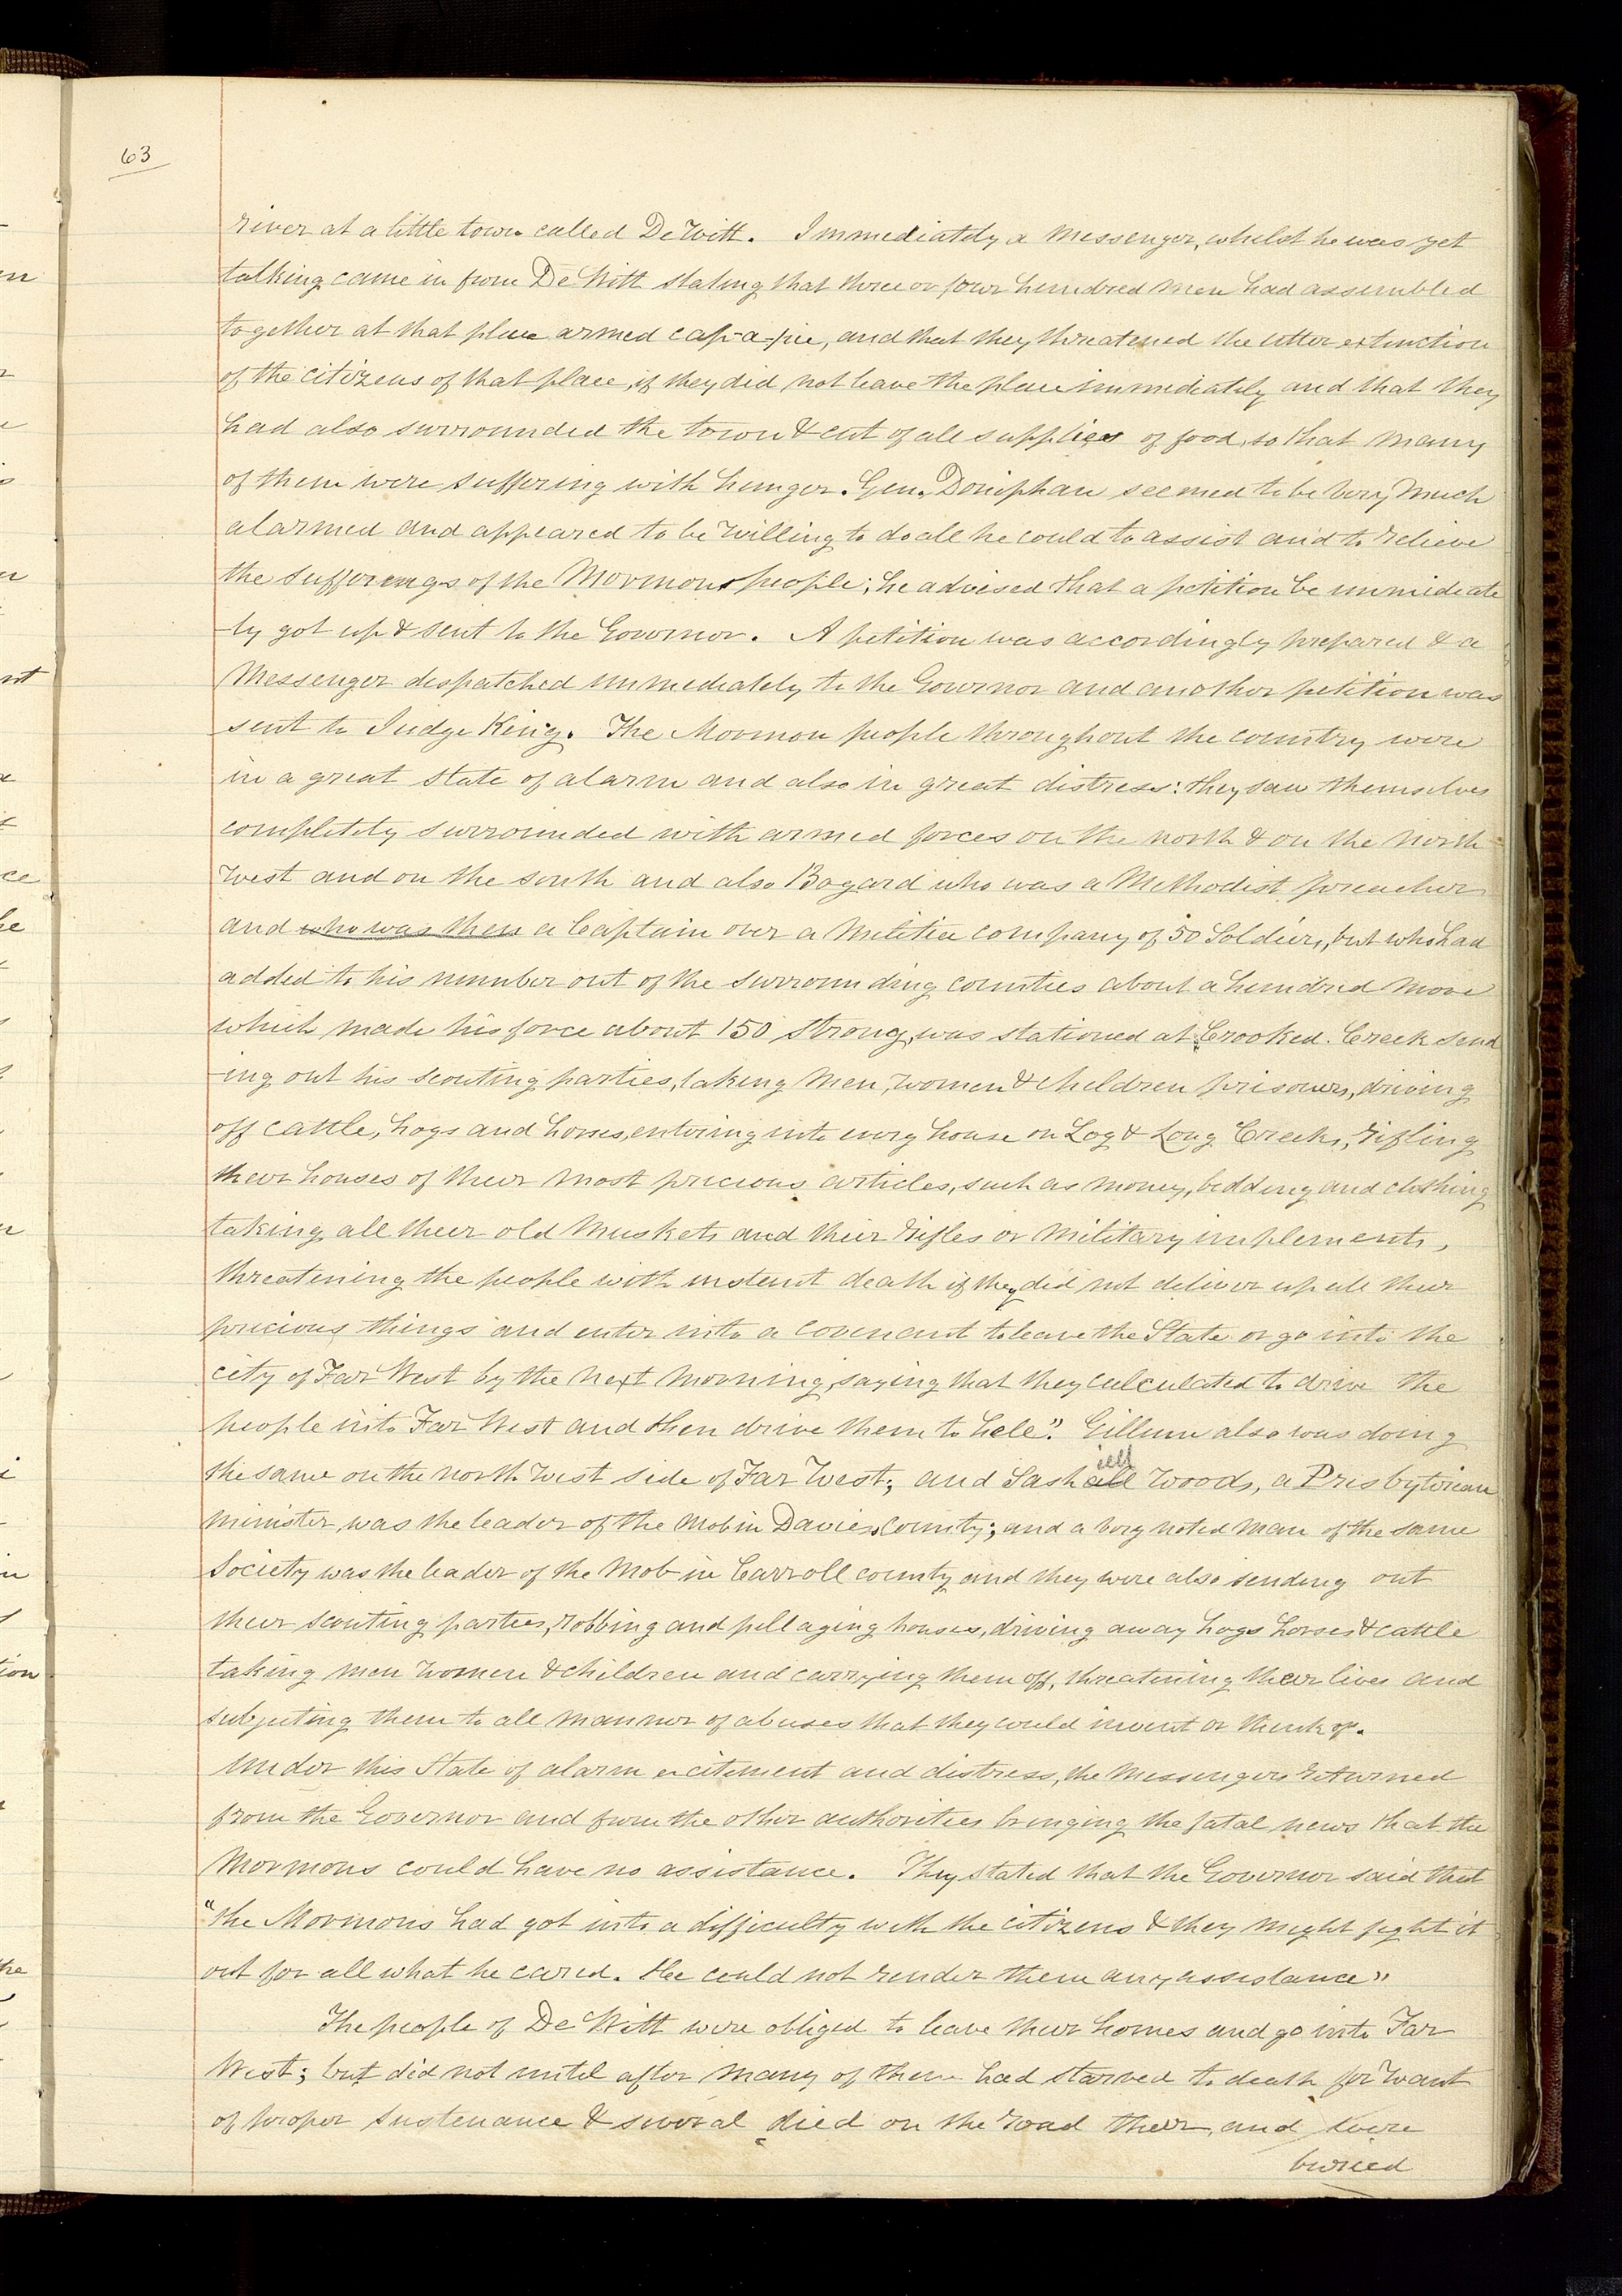 63
river at a little town called De Witt. Immediately a messenger, whilst he was yet
talking came in from De Witt stating that three or four hundred men had assembled
together at that place armed cap-a-pie, and that they threatened the utter extinction
of the citizens of that place, if they did not leave the place immediately and that they
had also surrounded the town & cut of all supplies of food, so that many
of them were suffering with hunger. Gen. Doniphan seemed to be very much
alarmed and appeared to be willing to do all he could to assist and to relieve
the sufferings of the Mormon people; he advised that a petition be immediate
-ly got up & sent to the Governor. A petition was accordingly prepared & a
Messenger despatched immediately to the Governor and another petition was
sent to Judge King. The Mormon people throughout the country were
in a great state of alarm and also in great distress: they saw themselves
completely surrounded with armed forces on the north & on the north
west and on the south and also Bogard who was a Methodist preacher
and who was then a Captain over a Militia company of 50 Soldiers, but who had
added to his number out of the surrounding counties about a hundred more
which made his force about 150 strong, was stationed at Crooked Creek send
-ing out his scouting parties, taking men, women & children prisoners, driving
off cattle, hogs and horses, entering into every house on Log & Long Creeks, rifling
their houses of their most precious articles, such as money, bedding and clothing
taking all their old muskets and their rifles or military implements,
threatening the people with instant death if they did not deliver up all their
precious things and enter into a covenant to leave the State or go into the
city of Far West by the next morning, saying that they calculated to drive the
people into Far West and then drive them to hell". Gillum also was doing
the same on the north west side of Far West; and Sashall iell Woods, a Presbyterian
minister, was the leader of the mob in Davies County; and a very noted man of the same
Society was the leader of the Mob in Carroll county and they were also sending out
their scouting parties, robbing and pillaging houses, driving away hogs horses & cattle
taking men women & children and carrying them off, threatening their lives and
subjuting them to all manner of abuses that they could invent or think of.
Under this State of alarm excitement and distress, the messengers returned
from the Governor and from the other authorities bringing the fatal news that the
Mormons could have no assistance. They stated that the Governor said that
"the Mormons had got into a difficulty with the citizens & they might fight it
out for all what he cared. He could not render them any assistance"
The people of De Witt were obliged to leave their homes and go into Far
West; but did not until after many of them had starved to death for want
of proper sustenance & several died on the road there, and were
buried